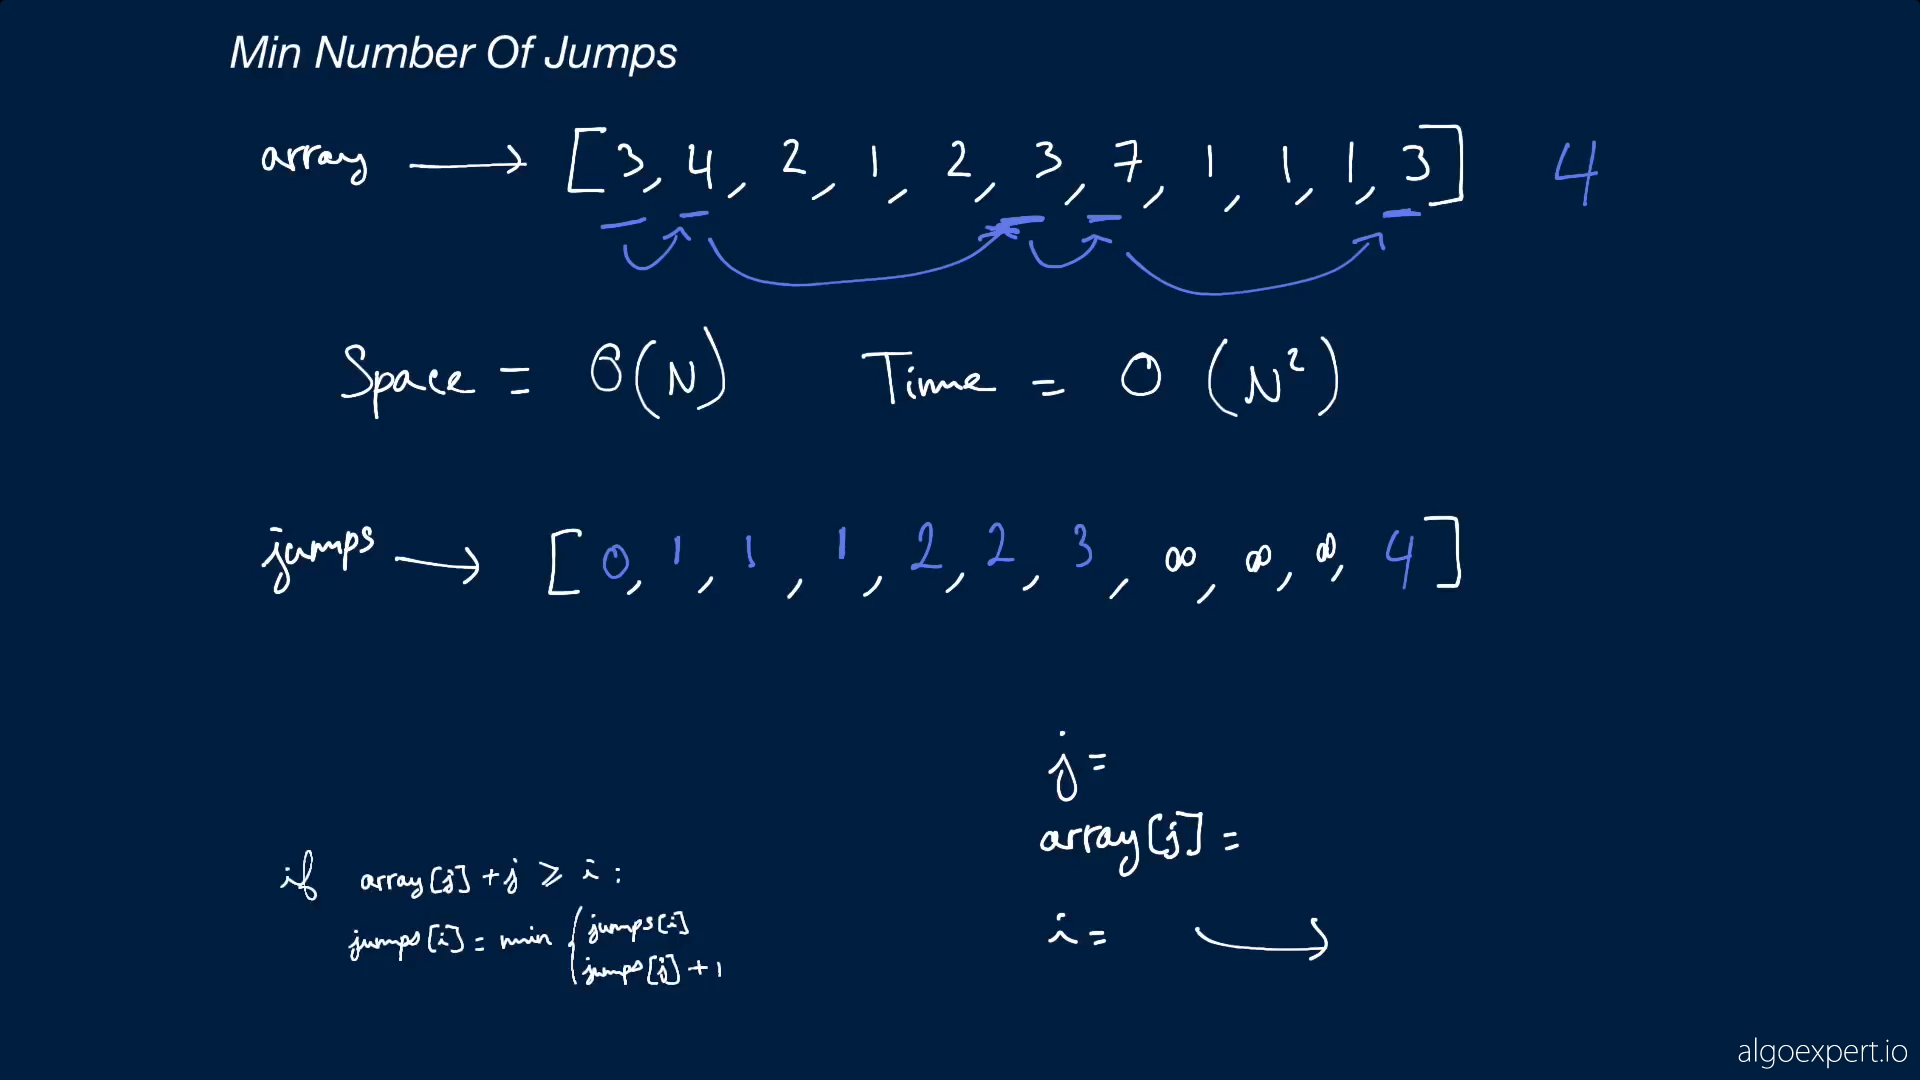 Min Number Of Jumps
array → [3, 4, 2, 1, 2, 3, 7, 1, 1, 1, 3] 4
Space = O(N) Time = O(N²)
jumps → [0, 1, 1, 1, 2, 2, 3, ∞, ∞, ∞, 4]
j =
array[j] =
if array[j] + j ⩾ i :
jumps[i] = min { jumps[i]
jumps[j] + 1
i = →
algoexpert.io